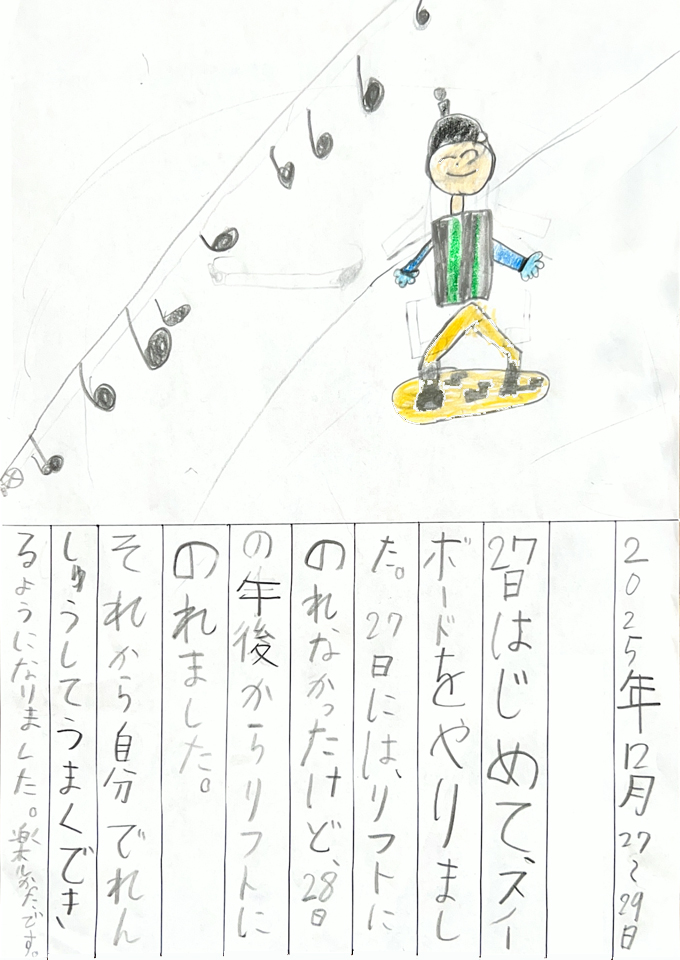 2025年12月27〜29日
27日はじめて、スノー
ボードをやりまし
た。27日には、リフトに
のれなかったけど、28日
の午後からリフトに
のれました。
それから自分でれん
しゅうしてうまくでき
るようになりました。楽しかったです。